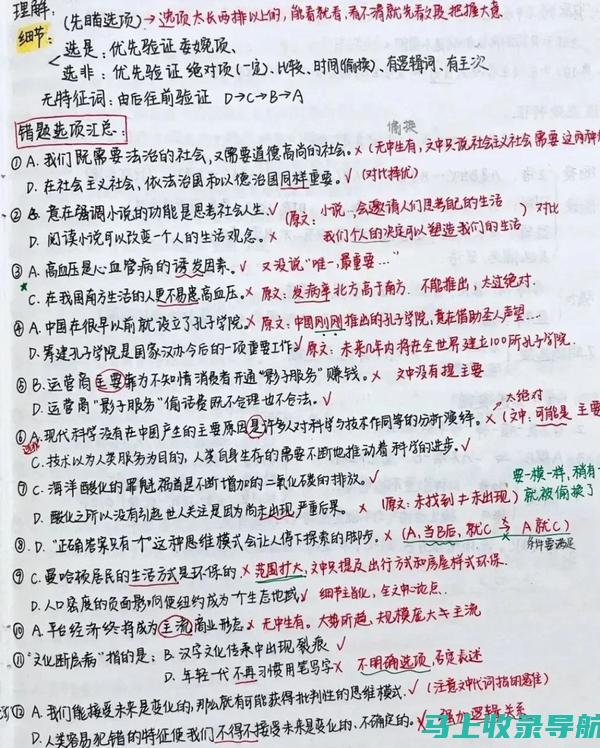 理解:
(先瞄选项)→选项太长两排以上的,能看就看,看不清就先看文段把握大意
细节:
选是:优先验证委婉项、
选非:优先验证绝对项(一定)、比较、时间(偷换)、有逻辑词、有主次
无特征词:由后往前验证 D→C→B→A
错题选项汇总:
偷换
①A.我们既需要法治的社会,又需要道德高尚的社会。×(无中生有,文中只说社会主义社会需要这两种
D.在社会主义社会,依法治国和以德治国同样重要。√(对比择优)
②B.意在强调小说的功能是思考社会人生.√(原文:小说…会邀请人们思考配的生活
D.阅读小说可以改变一个人的生活观念。× 我们个人的决定可以塑造我们的生活)对比
③A.高血压是心血管病的诱发因素.√ 又没说"唯一,最重要…"
C.在我国南方生活的人更不易患高血压。× 原文:发病率北方高于南方.不能推出,太过绝对.
④A.中国在很早以前就设立了孔子学院。× 原文:中国刚刚推出的孔子学院,意在借助圣人声望…
D.筹建孔子学院是国家汉办今后的一项重要工作√ 原文:未来几年内将在全世界建立100所孔子学院.
⑤B.运营商主要靠为不知情消费者开通"影子服务"赚钱。× 文中没有提主要
D.运营商"影子服务"偷话费既不合理也不合法。√
太绝对
⑥A.现代科学没有在中国产生的主要原因是许多人对科学与技术作同等的分析演绎。×(文中:可能是 主要
选非
C.技术以为人类服务为目的,人类自身生存的需要不断地推动着科学的进步。√
⑦C.海洋酸化的罪魁祸首是不断增加的二氧化碳的排放。√
要一模一样,稍有
D.酸化之所以没有引起世人关注是因为尚未出现严重后果。×(原文:未找到≠未出现)就被偷换了
⑧D."正确答案只有一个"这种思维模式会让人停下探索的脚步。×(A,当B后,就C → A就C)
条件要满足
⑨C.曼哈顿居民的生活方式是环保的×范围扩大,文中只提及出行方式和房屋样式环保.
D.人口密度的负面影响使纽约成为一个生态地域√ 细节主旨化,全文中心论点.
⑩A.平台经济终将成为主流商业形态.×无中生有。大势所趋,规模庞大≠主流
⑪"文化断层病"指的是:B.汉字文化传承中出现裂痕√
D.年轻一代不再习惯用笔写字× 不明确选项,否度表述
⑫A.我们能接受未来是变化的,那么就有可能获得批判性的思维模式.√(注意文中代词指的是谁)
D.人类容易犯错的特征使我们不得不接受未来是变化的、不确定的。×强加逻辑关系
马上收录导航